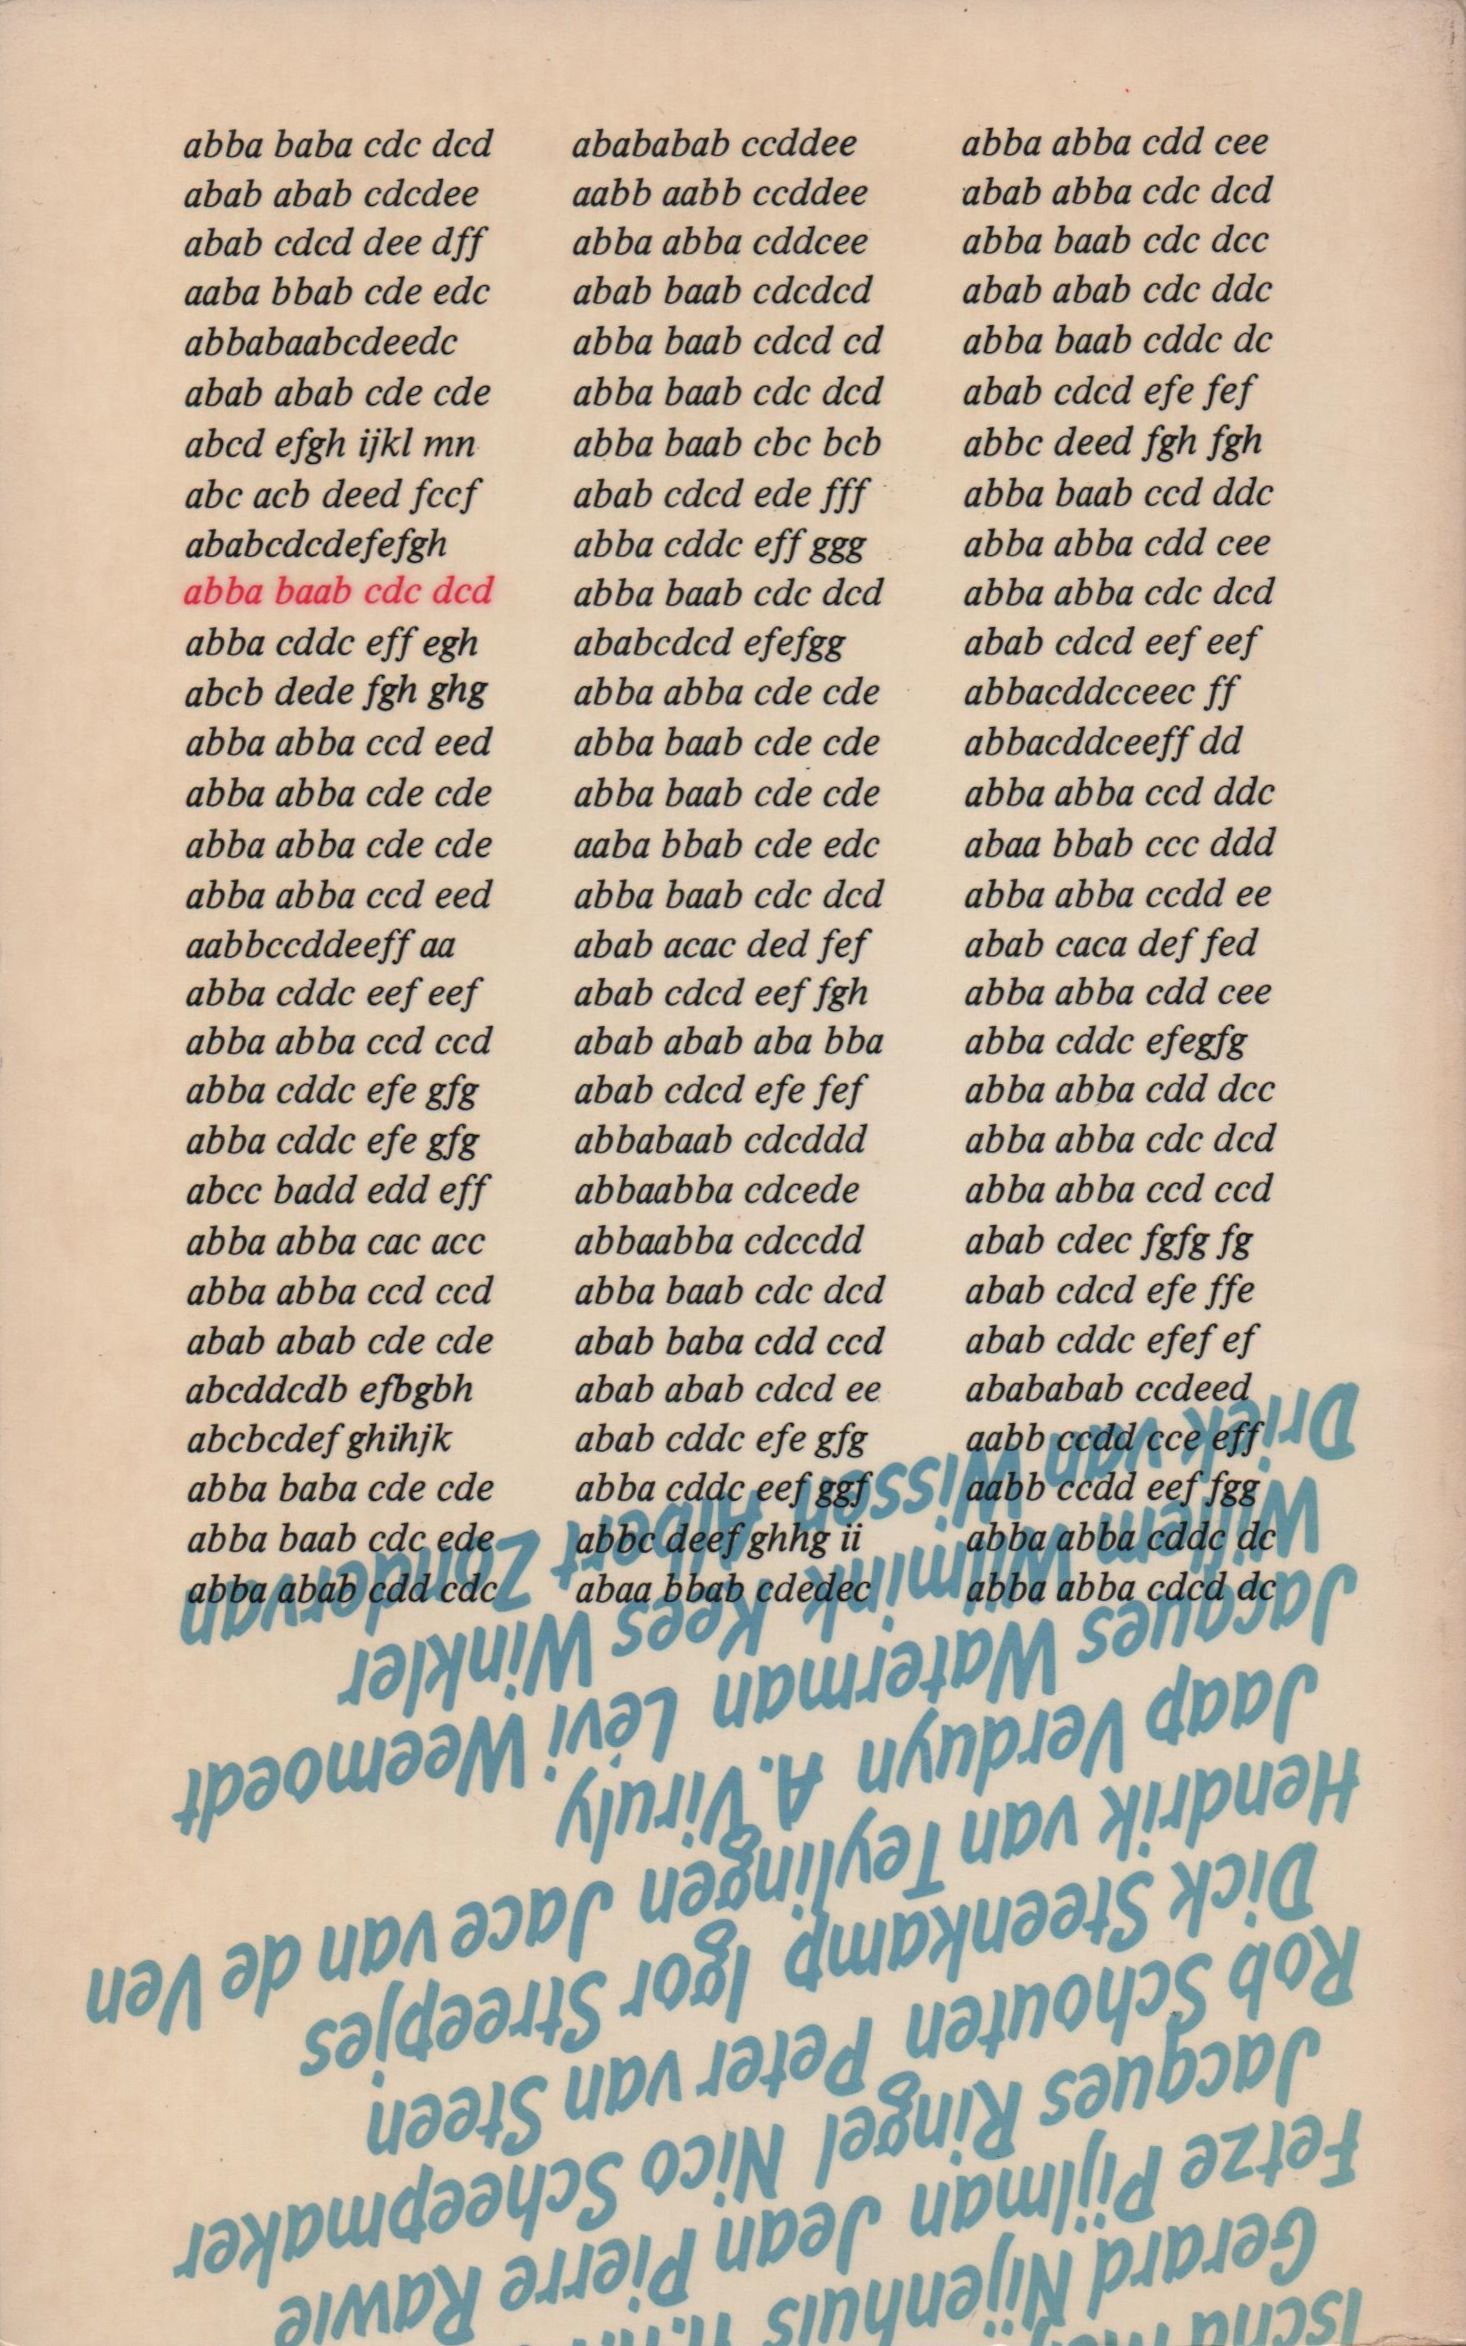 abba baba cdc dcd
abab abab cdcdee
abab cdcd dee dff
aaba bbab cde edc
abbabaabcdeedc
abab abab cde cde
abcd efgh ijkl mn
abc acb deed fccf
ababcdcdefefgh
abba baab cdc dcd
abba cddc eff egh
abcb dede fgh ghg
abba abba ccd eed
abba abba cde cde
abba abba cde cde
abba abba ccd eed
aabbccddeeff aa
abba cddc eef eef
abba abba ccd ccd
abba cddc efe gfg
abba cddc efe gfg
abcc badd edd eff
abba abba cac acc
abba abba ccd ccd
abab abab cde cde
abcddcdb efbgbh
abcbcdef ghihjk
abba baba cde cde
abba baab cdc ede
abba abab cdd cdc
abababab ccddee
aabb aabb ccddee
abba abba cddcee
abab baab cdcdcd
abba baab cdcd cd
abba baab cdc dcd
abba baab cbc bcb
abab cdcd ede fff
abba cddc eff ggg
abba baab cdc dcd
ababcdcd efefgg
abba abba cde cde
abba baab cde cde
abba baab cde cde
aaba bbab cde edc
abba baab cdc dcd
abab acac ded fef
abab cdcd eef fgh
abab abab aba bba
abab cdcd efe fef
abbabaab cdcddd
abbaabba cdcede
abbaabba cdccdd
abba baab cdc dcd
abab baba cdd ccd
abab abab cdcd ee
abab cddc efe gfg
abba cddc eef ggf
abbc deef ghhg ii
abaa bbab cdedec
abba abba cdd cee
abab abba cdc dcd
abba baab cdc dcc
abab abab cdc ddc
abba baab cddc dc
abab cdcd efe fef
abbc deed fgh fgh
abba baab ccd ddc
abba abba cdd cee
abba abba cdc dcd
abab cdcd eef eef
abbacddcceec ff
abbacddceeff dd
abba abba ccd ddc
abaa bbab ccc ddd
abba abba ccdd ee
abab caca def fed
abba abba cdd cee
abba cddc efegfg
abba abba cdd dcc
abba abba cdc dcd
abba abba ccd ccd
abab cdec fgfg fg
abab cdcd efe ffe
abab cddc efef ef
abababab ccdeed
aabb ccdd cce eff
aabb ccdd eef fgg
abba abba cddc dc
abba abba cdcd dc
Gerard Nijenhuis
Fetze Pijlman Jean Pierre Rawie
Jacques Ringel Nico Scheepmaker
Rob Schouten Peter van Steen
Dick Steenkamp Igor Streepjes
Hendrik van Teylingen Jace van de Ven
Jaap Verduyn A. Viruly
Jacques Waterman Levi Weemoedt
Willem Wilmink Kees Winkler
Driek van Wissen Albert Zondervan